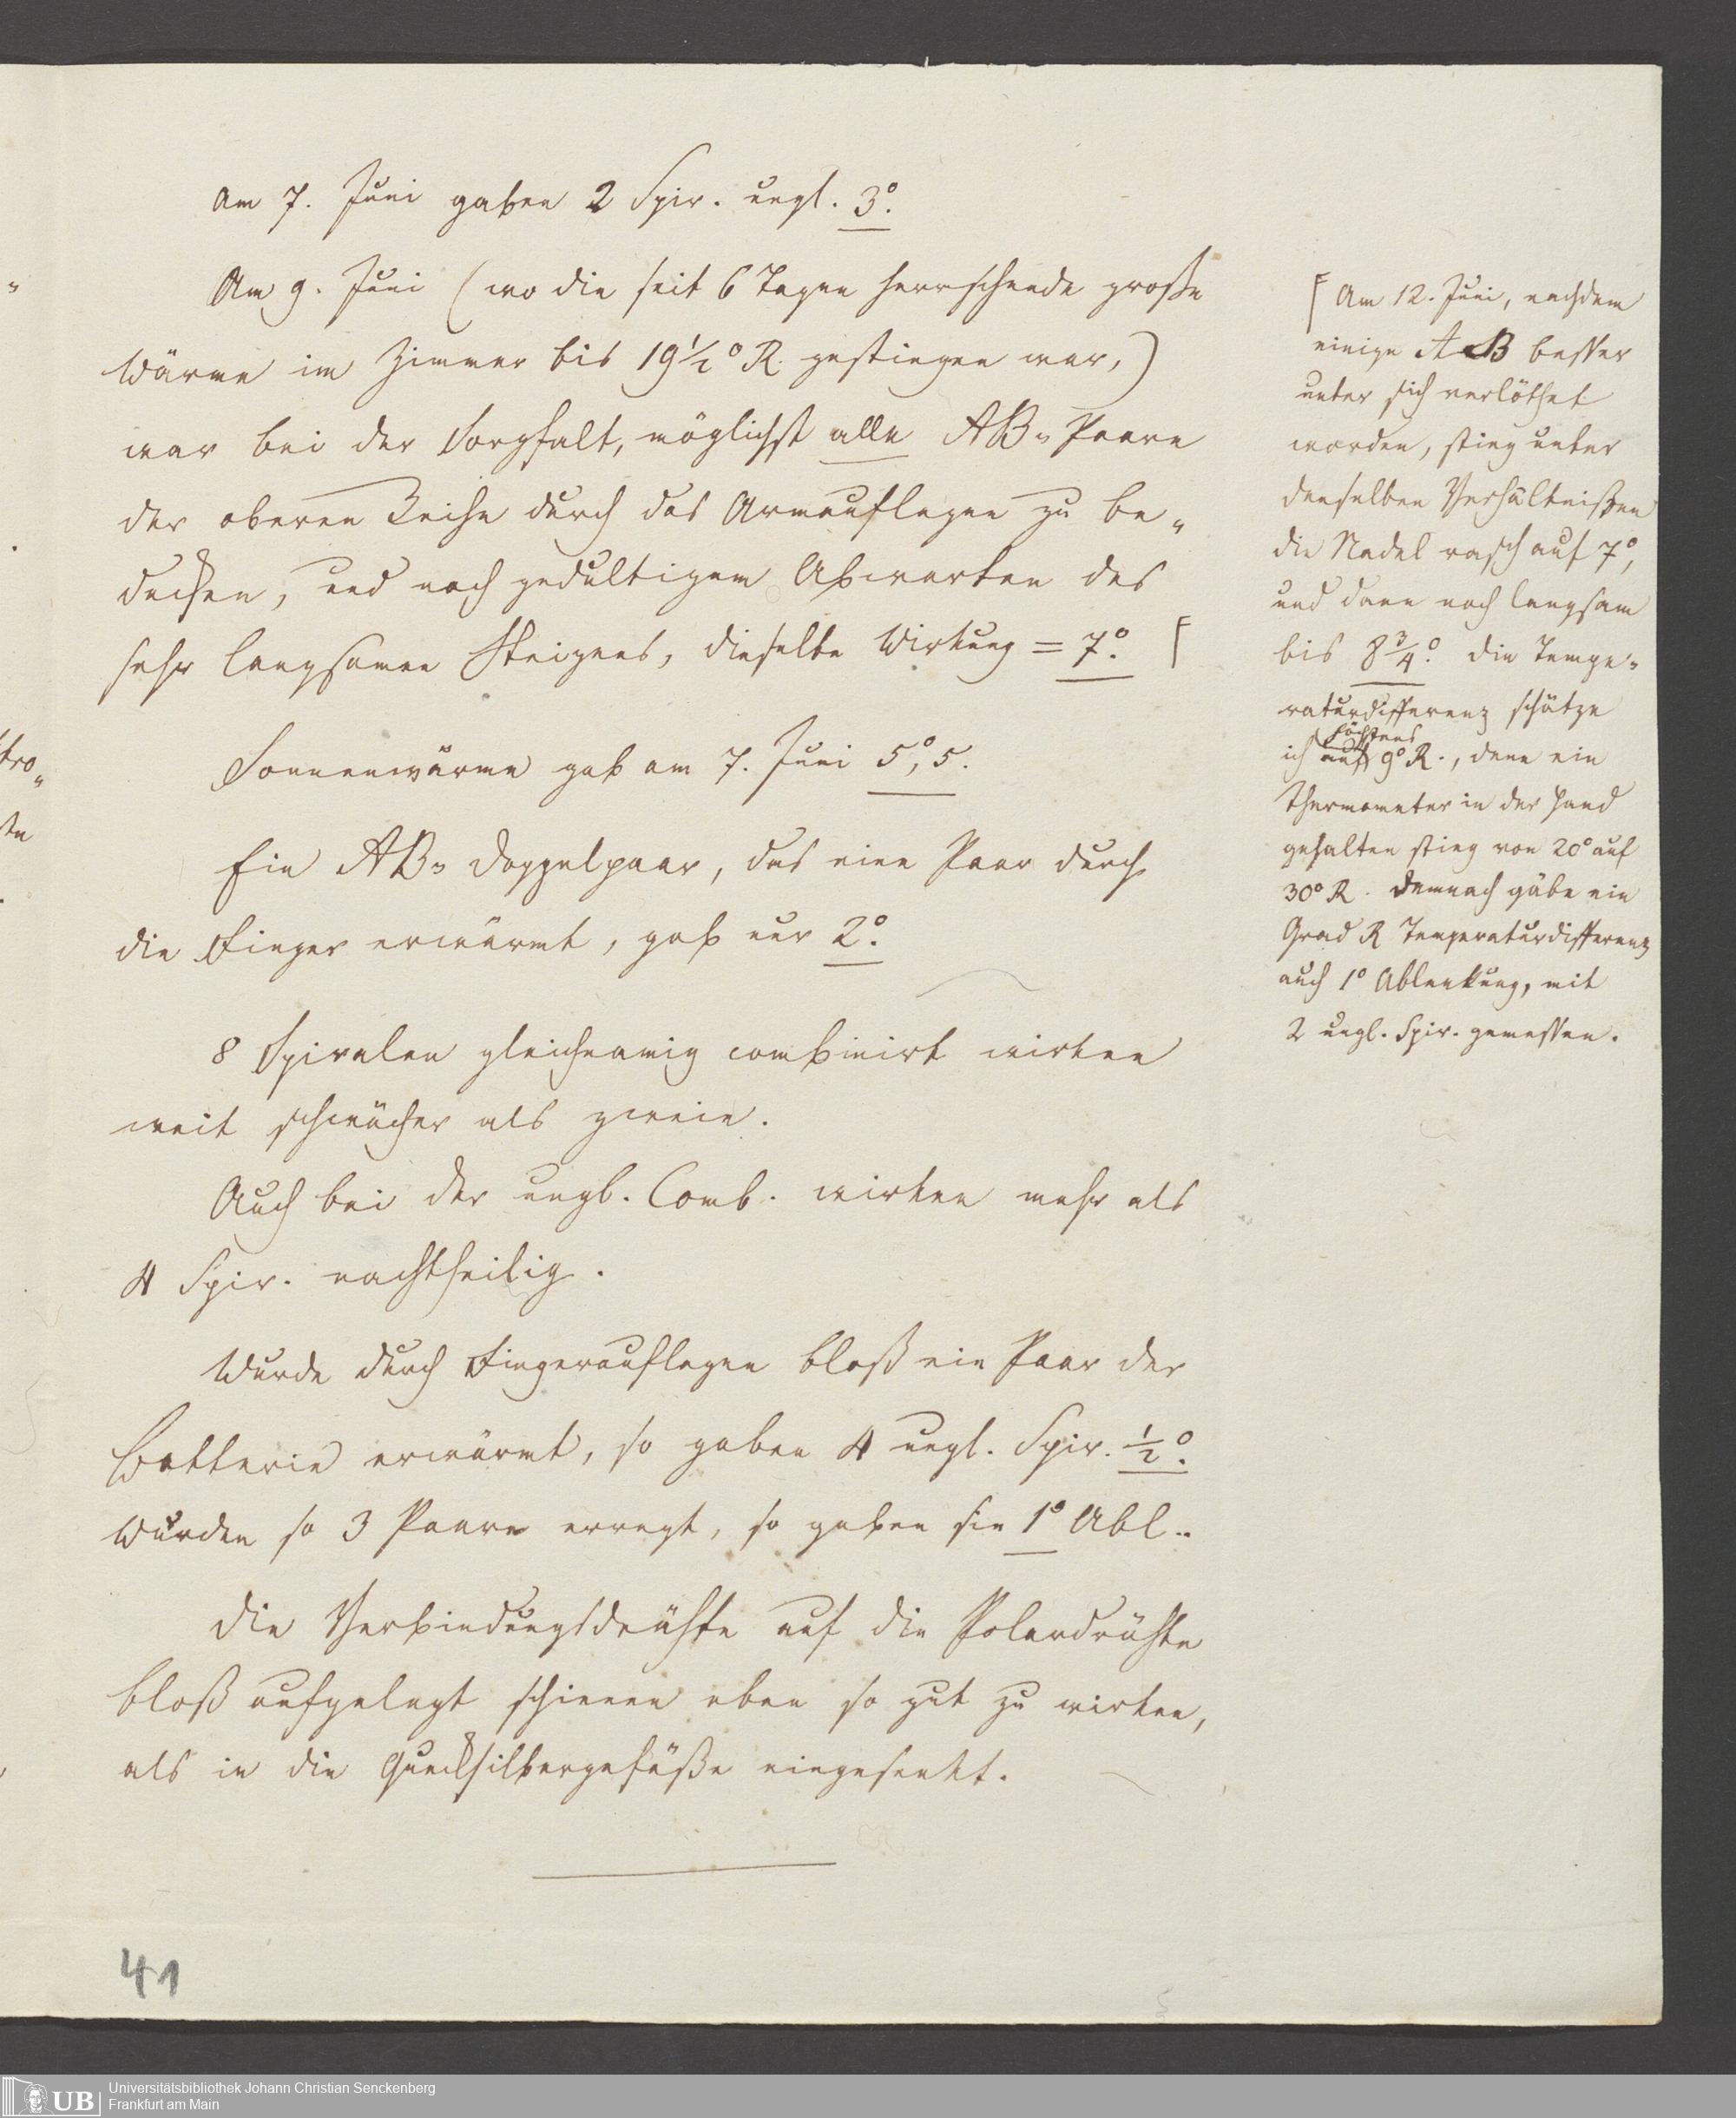 Am 7. Juni gaben 2 Spir. ungl. 3°.
Am 9. Juni (wo die seit 6 Tagen herrschende große
Wärme im Zimmer bis 19½° R. gestiegen war,)
war bei der Sorgfalt, möglichst alle AB-Paare
der oberen Reihe durch das Armauflegen zu be-
decken, und nach gedultigem Abwarten des
sehr langsamen Steigens, dieselbe Wirkung = 7°. [
Sonnenwärme gab am 7. Juni 5°,5.
Ein AB-Doppelpaar, das eine Paar durch
die Finger erwärmt, gab nur 2°.
8 Spiralen gleichnamig combinirt wirken
weit schwächer als zweie.
Auch bei der ungl. Comb. wirken mehr als
4 Spir. nachtheilig.
Wurde durch Fingerauflegen bloß ein Paar der
Batterie erwärmt, so gaben 4 ungl. Spir. ½°.
Wurden so 3 Paare erregt, so gaben sie 1° Abl..
Die Verbindungsdrähte auf die Polardrähte
bloß aufgelegt schienen eben so gut zu wirken,
als in die Quecksilbergefäße eingesenkt.
[ Am 12. Juni, nachdem
einige AB besser
unter sich verlöthet
worden, stieg unter
denselben Verhältnißen
die Nadel rasch auf 7°,
und dann noch langsam
bis 8¾°. Die Tempe-
raturdifferenz schätze
höchstens
ich auf 9° R., denn ein
Thermometer in der Hand
gehalten stieg von 20° auf
30° R. Demnach gäbe ein
Grad R Temperaturdifferenz
auch 1° Ablenkung, mit
2 ungl. Spir. gemessen.
tro-
ste
41
UB
Universitätsbibliothek Johann Christian Senckenberg
Frankfurt am Main